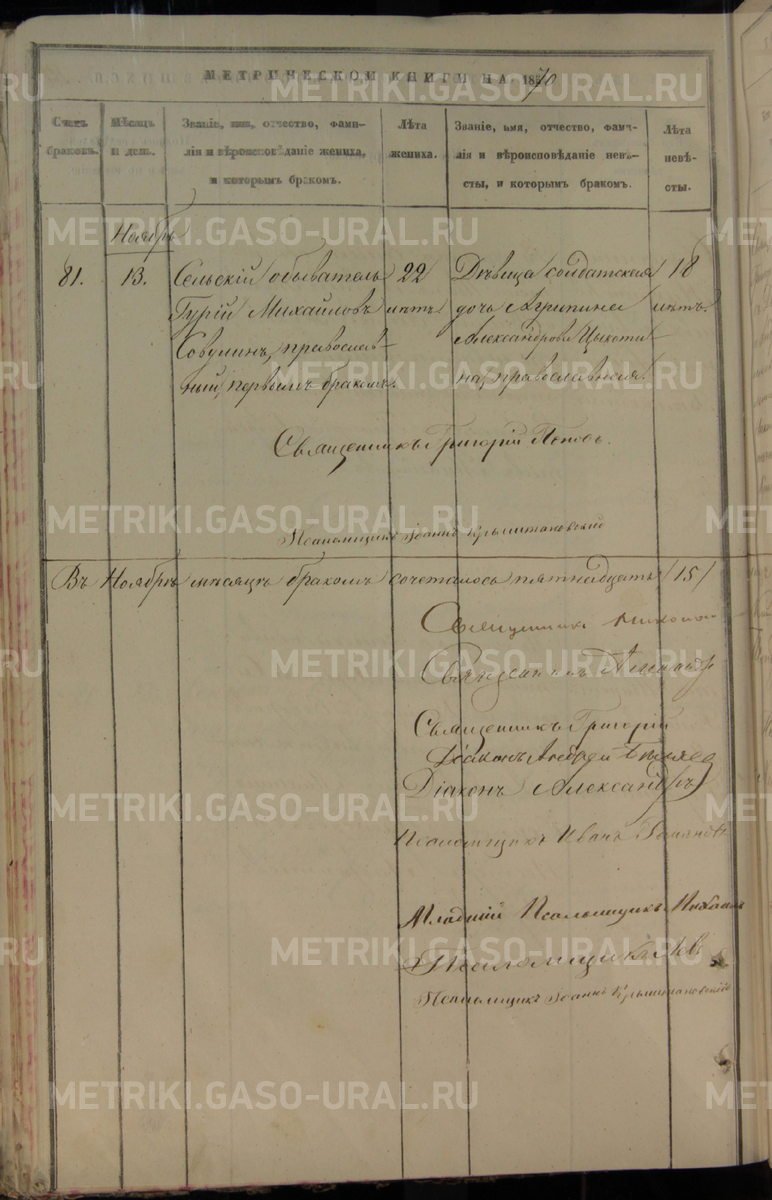 МЕТРИЧЕСКОЙ КНИГИ НА 1870
Счетъ браковъ.
Мѣсяцъ и день.
Званіе, имя, отчество, фами-
лія и вѣроисповѣданіе жениха,
и которымъ бракомъ.
Лѣта
жениха.
Званіе, имя, отчество, фами-
лія и вѣроисповѣданіе невѣ-
сты, и которымъ бракомъ.
Лѣта
невѣ-
сты.
Ноябрь
81.
13.
Сельскій обыватель
Гурій Михайловъ
Совулинъ, православ-
ный, первымъ бракомъ.
22
лѣтъ
Дѣвица солдатская
дочь Агрипина
Александрова
на, православная.
18
лѣтъ.
Священникъ Григорій Поповъ.
Псаломщикъ Іоаннъ Крыштановскій
Въ Ноябрѣ мѣсяцѣ бракомъ сочеталось пятнадцать /15/
Священникъ
Священникъ
Священникъ Григорій
Діаконъ
Діаконъ Александръ
Псаломщикъ Иванъ
Младшій Псаломщикъ Михаилъ
Псаломщикъ Левъ
Псаломщикъ Іоаннъ Крыштановскій
METRIKI.GASO-URAL.RU